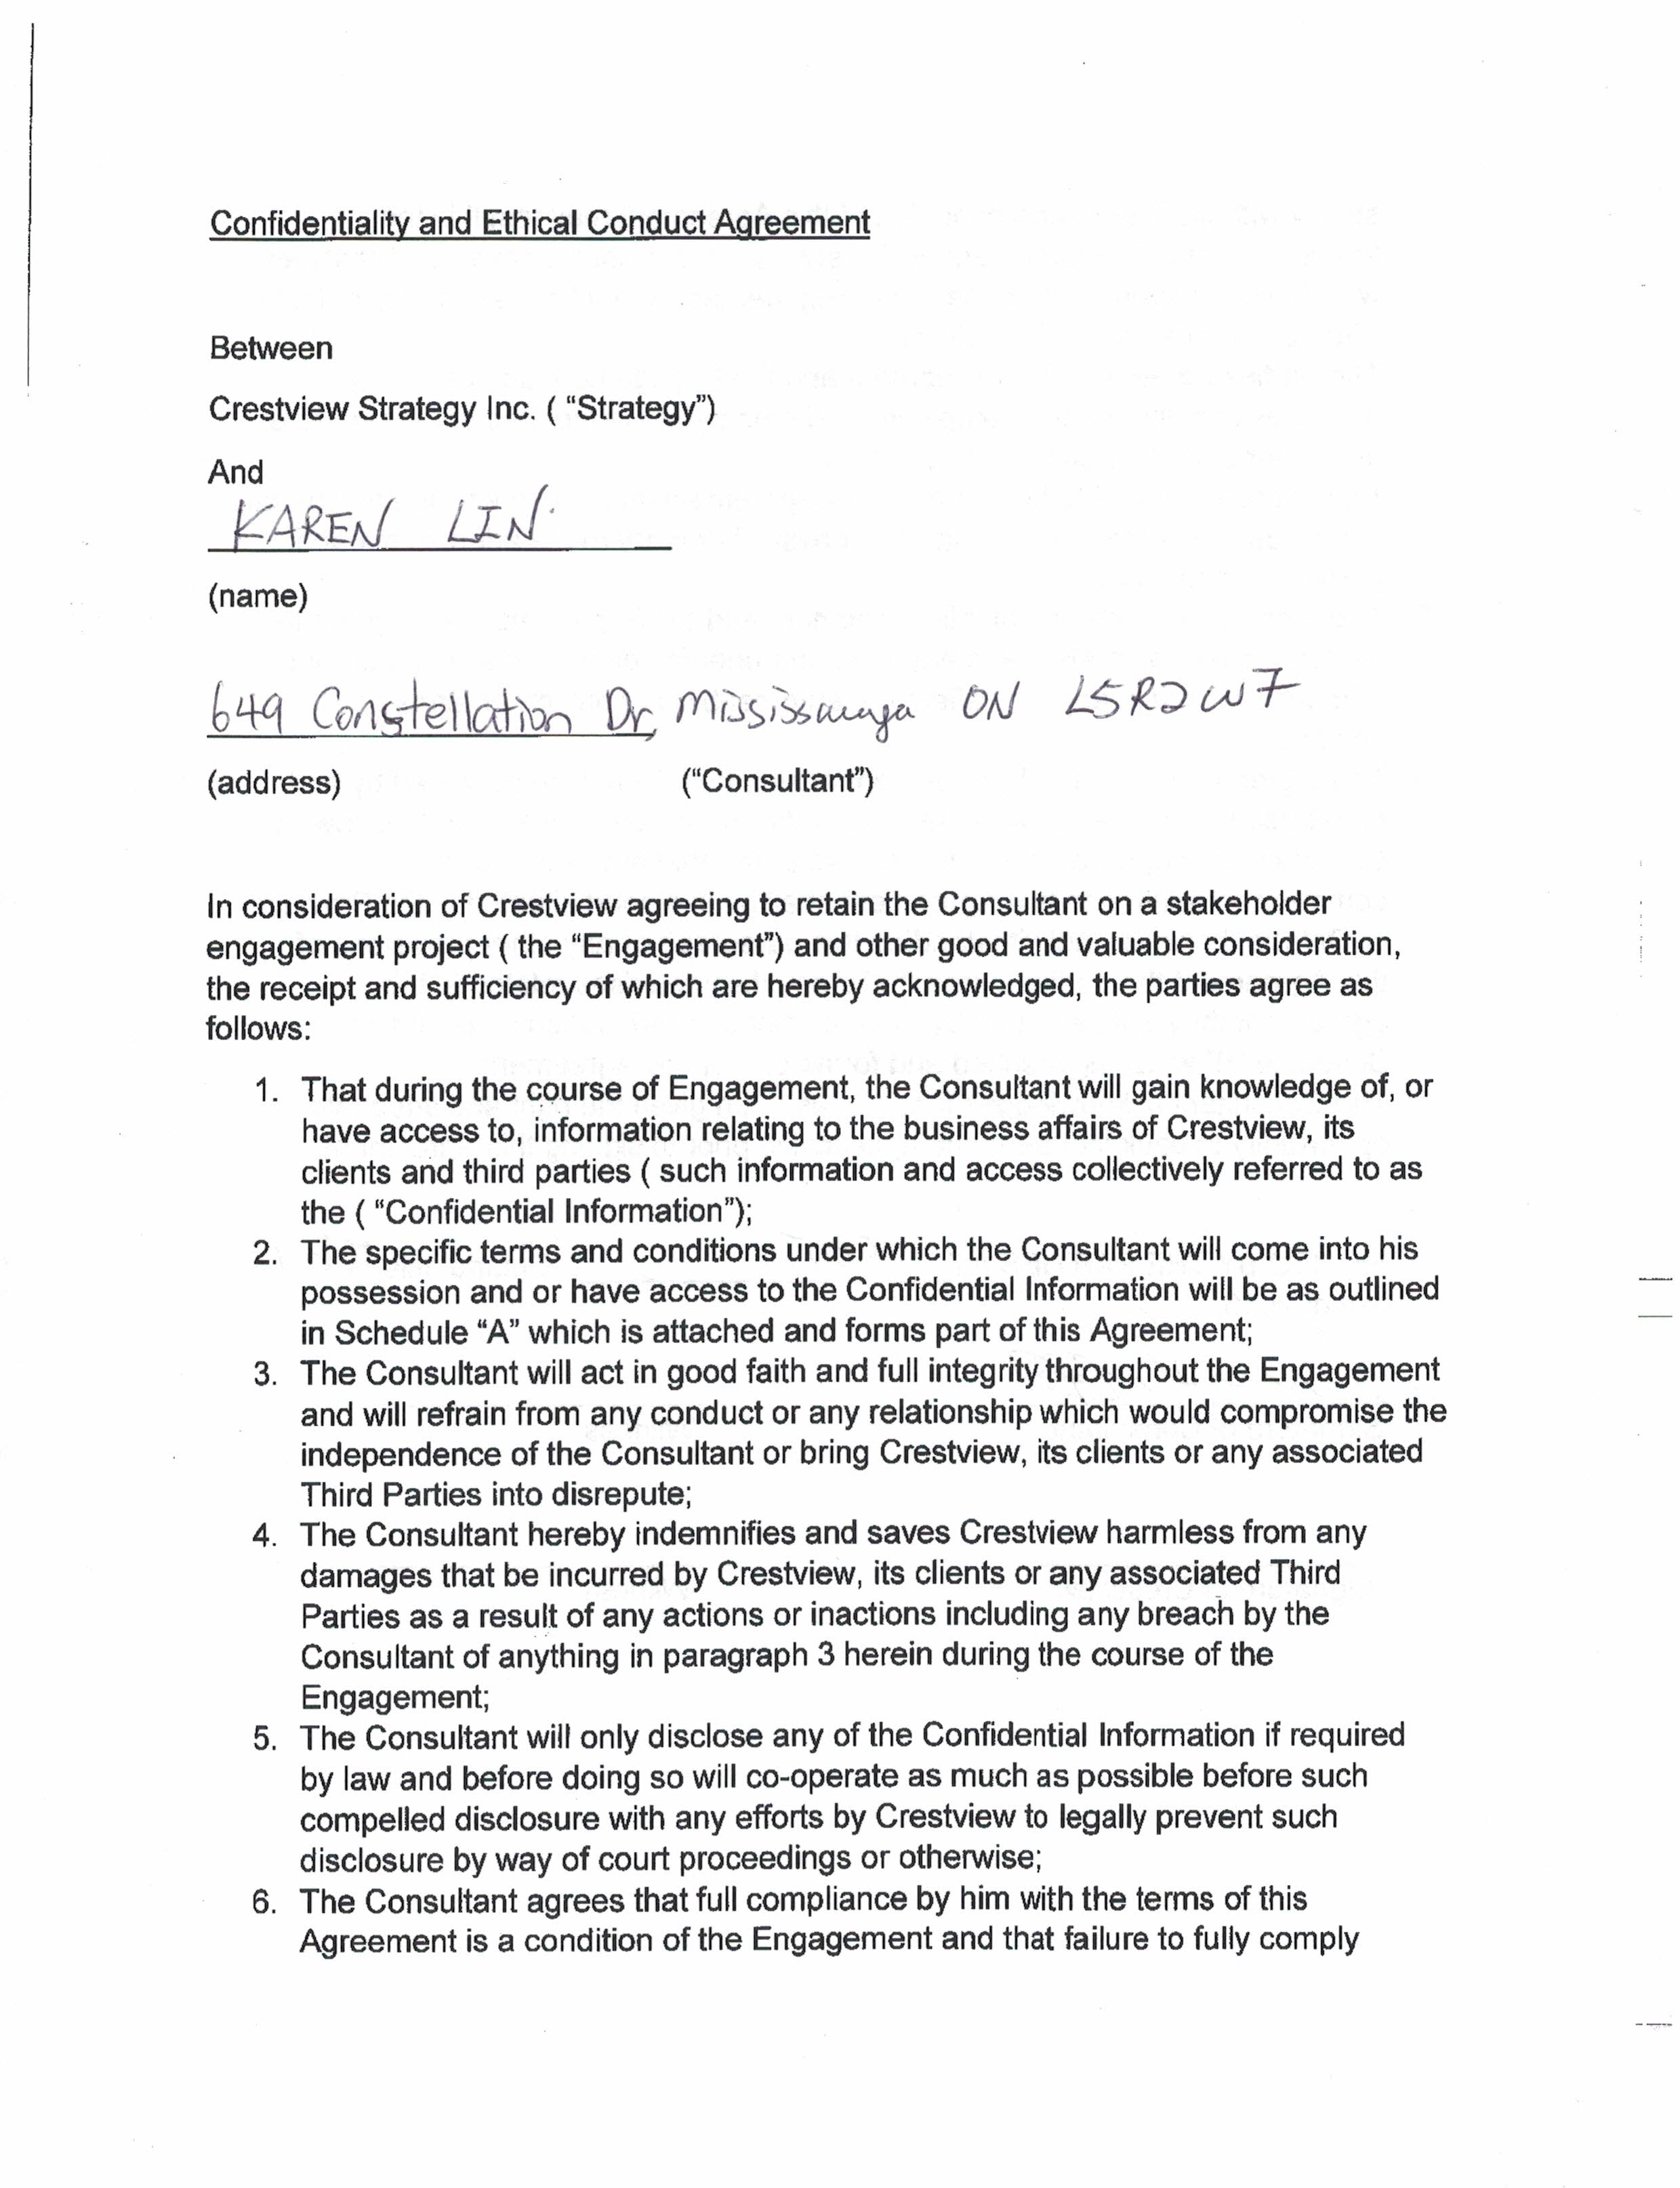 Confidentiality and Ethical Conduct Agreement
Between
Crestview Strategy Inc. ( “Strategy”)
And
KAREN LIN
(name)
649 Constellation Dr, Mississauga ON L5R2W7
(address) (“Consultant”)
In consideration of Crestview agreeing to retain the Consultant on a stakeholder
engagement project ( the “Engagement”) and other good and valuable consideration,
the receipt and sufficiency of which are hereby acknowledged, the parties agree as
follows:
1. That during the course of Engagement, the Consultant will gain knowledge of, or
have access to, information relating to the business affairs of Crestview, its
clients and third parties ( such information and access collectively referred to as
the ( “Confidential Information”);
2. The specific terms and conditions under which the Consultant will come into his
possession and or have access to the Confidential Information will be as outlined
in Schedule “A” which is attached and forms part of this Agreement;
3. The Consultant will act in good faith and full integrity throughout the Engagement
and will refrain from any conduct or any relationship which would compromise the
independence of the Consultant or bring Crestview, its clients or any associated
Third Parties into disrepute;
4. The Consultant hereby indemnifies and saves Crestview harmless from any
damages that be incurred by Crestview, its clients or any associated Third
Parties as a result of any actions or inactions including any breach by the
Consultant of anything in paragraph 3 herein during the course of the
Engagement;
5. The Consultant will only disclose any of the Confidential Information if required
by law and before doing so will co-operate as much as possible before such
compelled disclosure with any efforts by Crestview to legally prevent such
disclosure by way of court proceedings or otherwise;
6. The Consultant agrees that full compliance by him with the terms of this
Agreement is a condition of the Engagement and that failure to fully comply